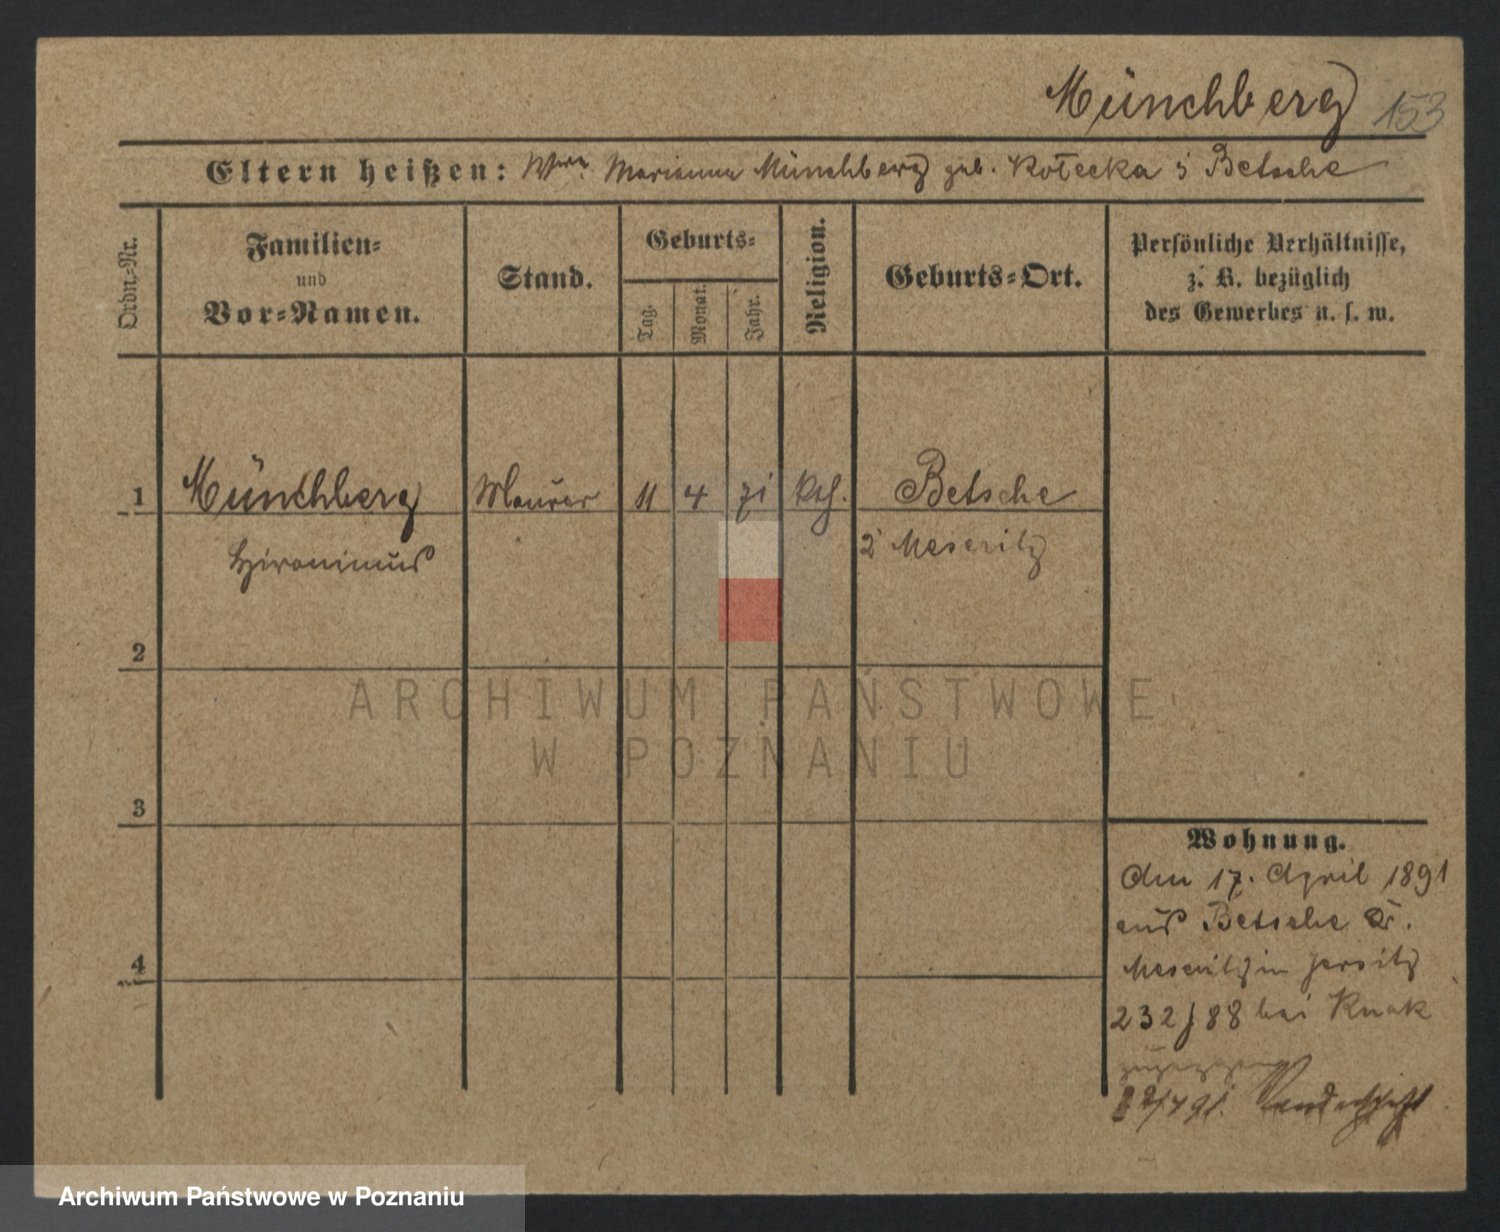 Münchberg 153
Eltern heißen: Wwe. Marianna Münchberg geb. Kołecka i Betsche
Ordn.-Nr.
Familien-
und
Vor-Namen.
Stand.
Geburts-
Tag.
Monat.
Jahr.
Religion.
Geburts-Ort.
Persönliche Verhältnisse,
z. B. bezüglich
des Gewerbes u. s. w.
1 Münchberg Maurer 11 4 71 kth. Betsche
Hironimus Meseritz
2
3
4
Wohnung.
Am 17. April 1891
aus Betsche Kr.
Meseritz in Jersitz
232/88 bei Knak
zugezogen
91. Wanderschaft
ARCHIWUM PAŃSTWOWE
W POZNANIU
Archiwum Państwowe w Poznaniu